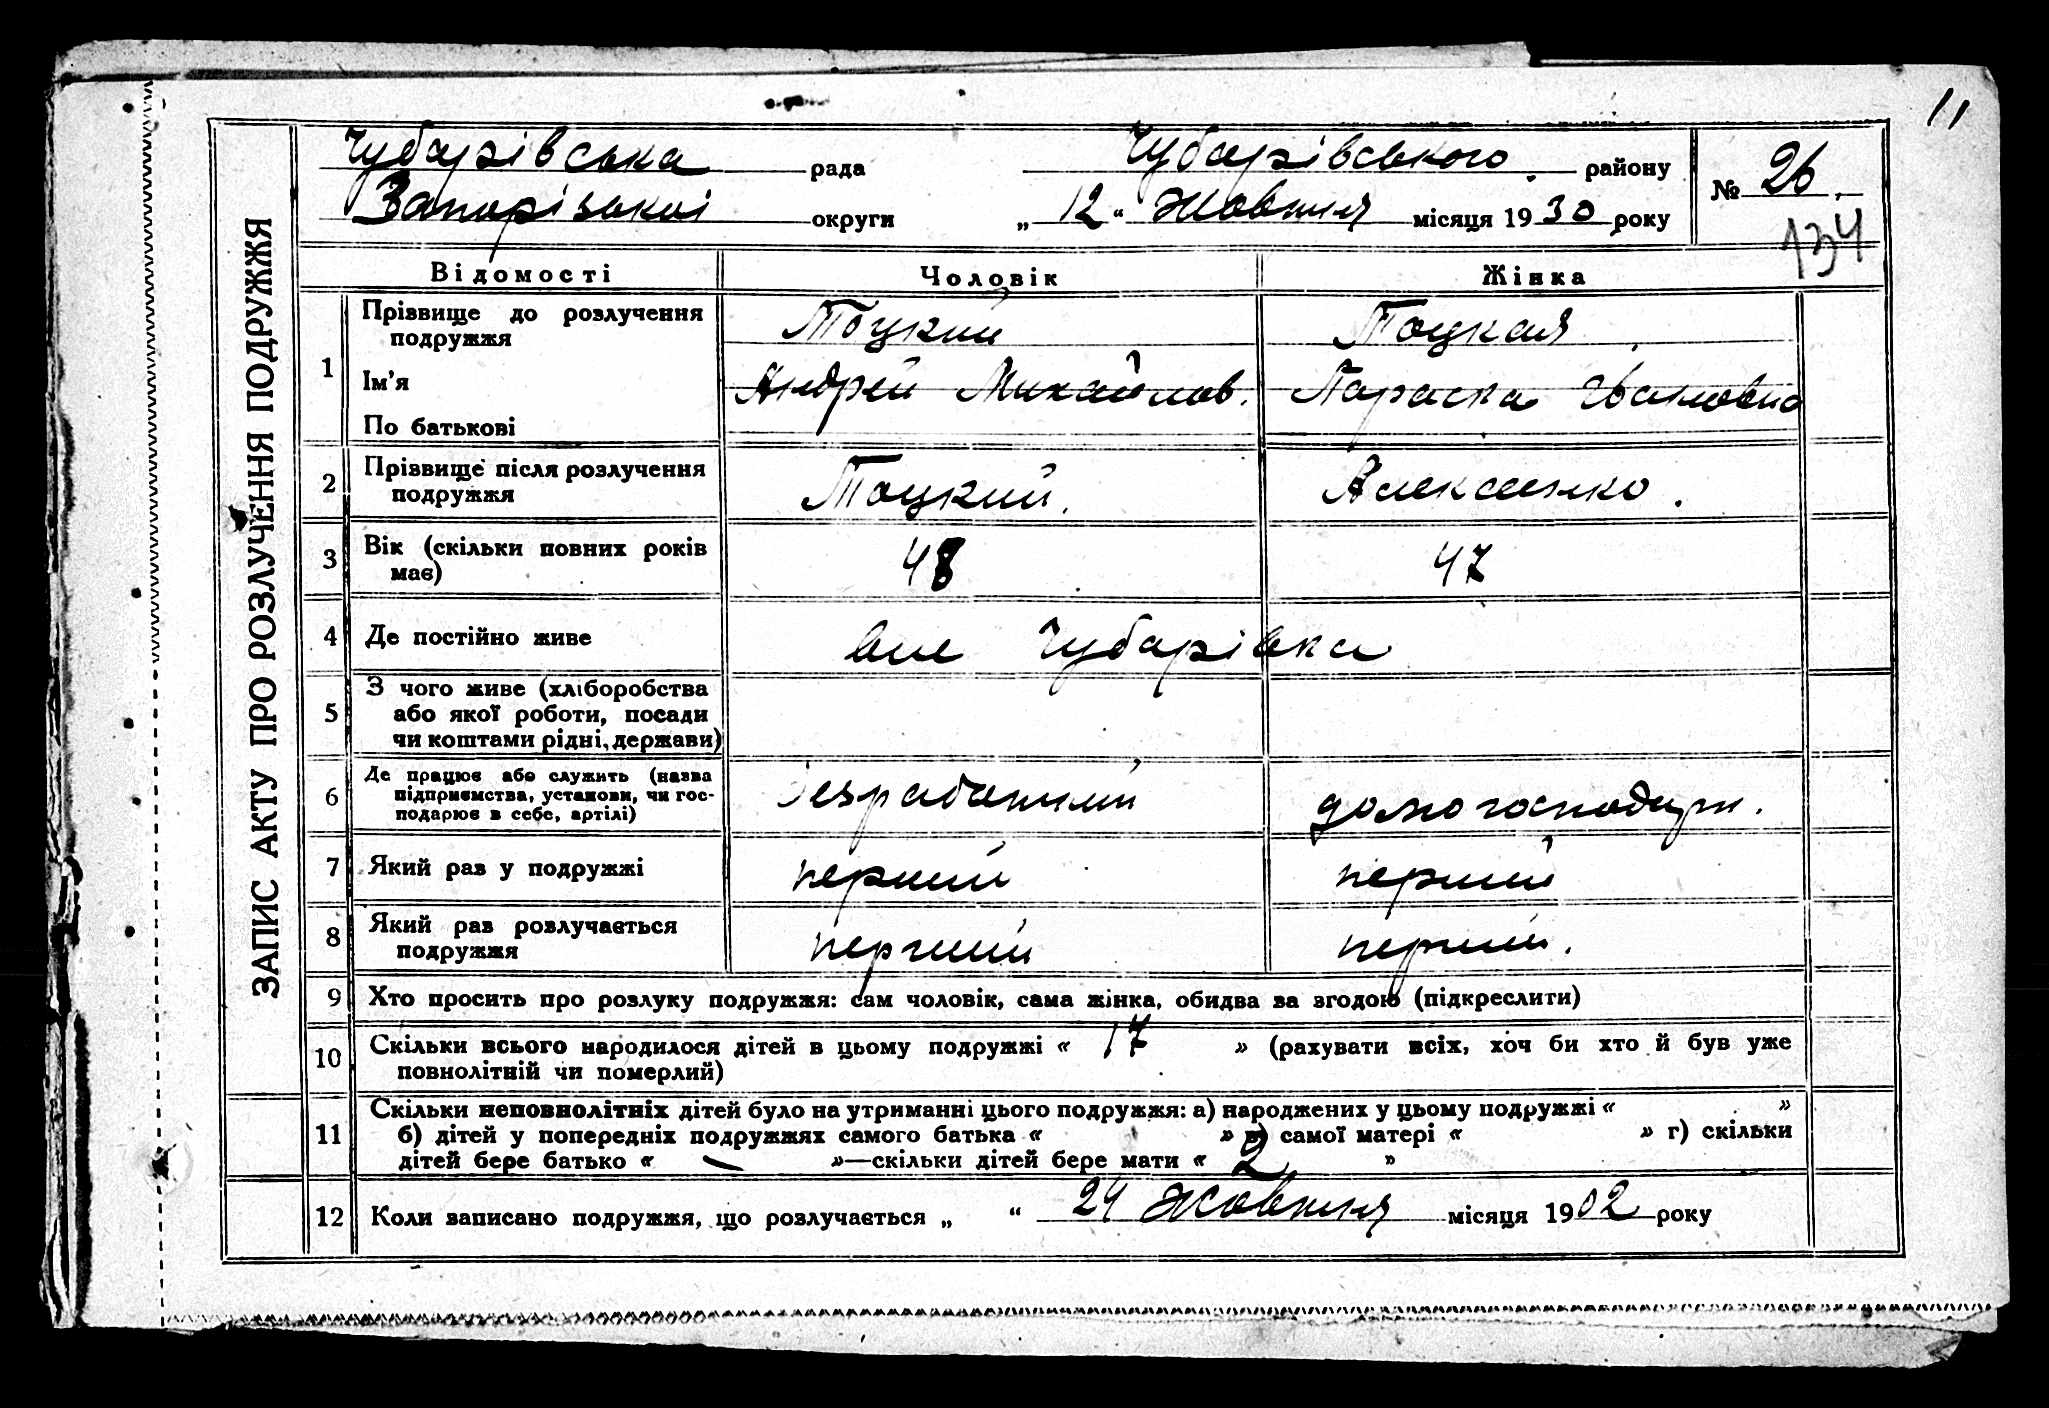 11
Чубарівська рада Чубарівського району № 26.
Запорізької округи „ 12 “ Жовтня місяця 19 30 року
134
ЗАПИС АКТУ ПРО РОЗЛУЧЕННЯ ПОДРУЖЖЯ
Відомості Чоловік Жінка
1 Прізвище до розлучення подружжя Тоцкий Тоцкая
Ім'я Андрей Михайлов. Параска Ивановна
По батькові
2 Прізвище після розлучення
подружжя Тоцкий. Алексенко.
3 Вік (скільки повних років
має) 48 47
4 Де постійно живе Чубарівка
5 З чого живе (хліборобства
або якої роботи, посади
чи коштами рідні, держави)
6 Де працює або служить (назва
підприємства, установи, чи гос-
подарює в себе, артілі) безработний домогосподарк.
7 Який раз у подружжі перший перший
8 Який раз розлучається
подружжя перший перший.
9 Хто просить про розлуку подружжя: сам чоловік, сама жінка, обидва за згодою (підкреслити)
10 Скільки всього народилося дітей в цьому подружжі « 17 » (рахувати всіх, хоч би хто й був уже
повнолітній чи померлий)
11 Скільки неповнолітніх дітей було на утриманні цього подружжя: а) народжених у цьому подружжі « »
б) дітей у попередніх подружжях самого батька « » в) самої матері « » г) скільки
дітей бере батько « — »—скільки дітей бере мати « 2 »
12 Коли записано подружжя, що розлучається „ “ 24 Жовтня місяця 1902 року